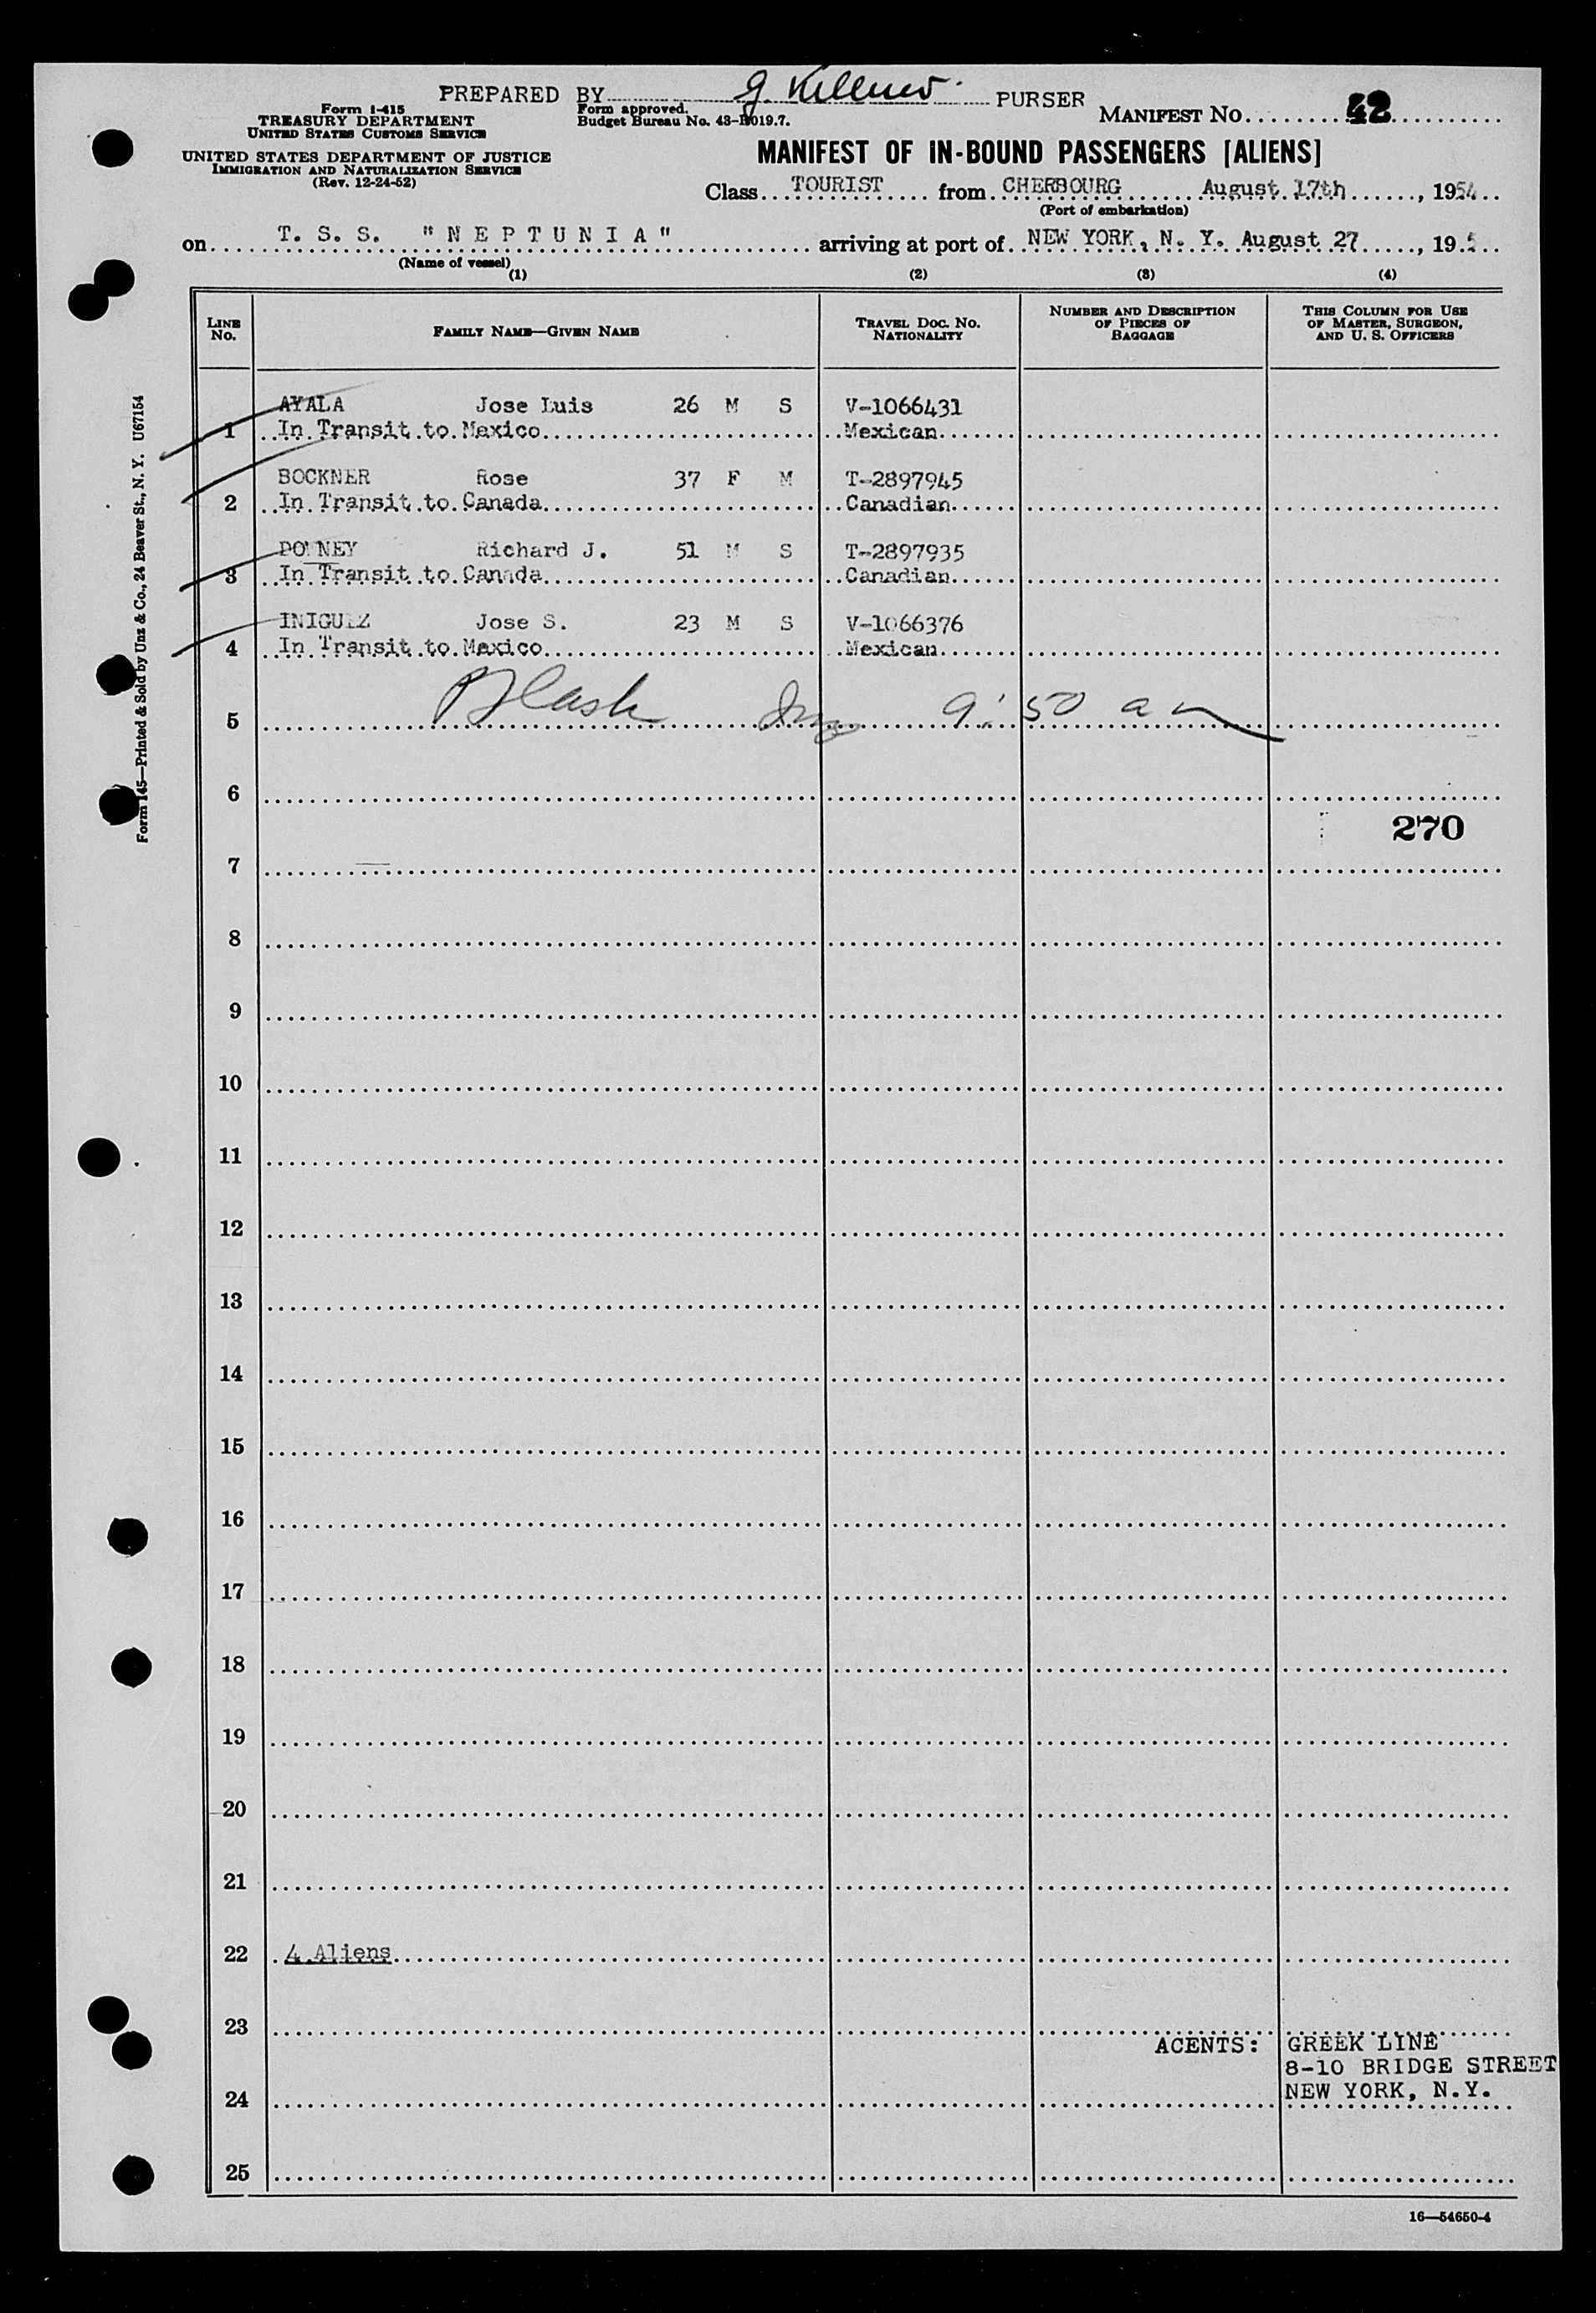 PREPARED BY G. Killner PURSER
Form I-415
TREASURY DEPARTMENT
UNITED STATES CUSTOMS SERVICE
Form approved.
Budget Bureau No. 43-R019.7.
MANIFEST NO. 42
UNITED STATES DEPARTMENT OF JUSTICE
IMMIGRATION AND NATURALIZATION SERVICE
(Rev. 12-24-52)
MANIFEST OF IN-BOUND PASSENGERS [ALIENS]
Class TOURIST from CHERBOURG August 17th, 1954
(Port of embarkation)
on T. S. S. "NEPTUNIA" arriving at port of NEW YORK, N. Y. August 27, 195
(Name of vessel)
(1) (2) (3) (4)
LINE NO.
FAMILY NAME—GIVEN NAME
TRAVEL DOC. NO. NATIONALITY
NUMBER AND DESCRIPTION OF PIECES OF BAGGAGE
THIS COLUMN FOR USE OF MASTER, SURGEON, AND U. S. OFFICERS
AYALA Jose Luis 26 M S V-1066431
1 In Transit to Mexico Mexican
BOCKNER Rose 37 F M T-2897945
2 In Transit to Canada Canadian
Richard J. 51 M S T-2897935
3 In Transit to Canada Canadian
INIGUEZ Jose S. 23 M S V-1066376
4 In Transit to Mexico Mexican
5 9:50 am
6
270
7
8
9
10
11
12
13
14
15
16
17
18
19
20
21
22 4 Aliens
23
AGENTS: GREEK LINE
8-10 BRIDGE STREET
NEW YORK, N.Y.
24
25
16—54650-4
Form 145—Printed & Sold by Unz & Co., 24 Beaver St., N. Y. U67154